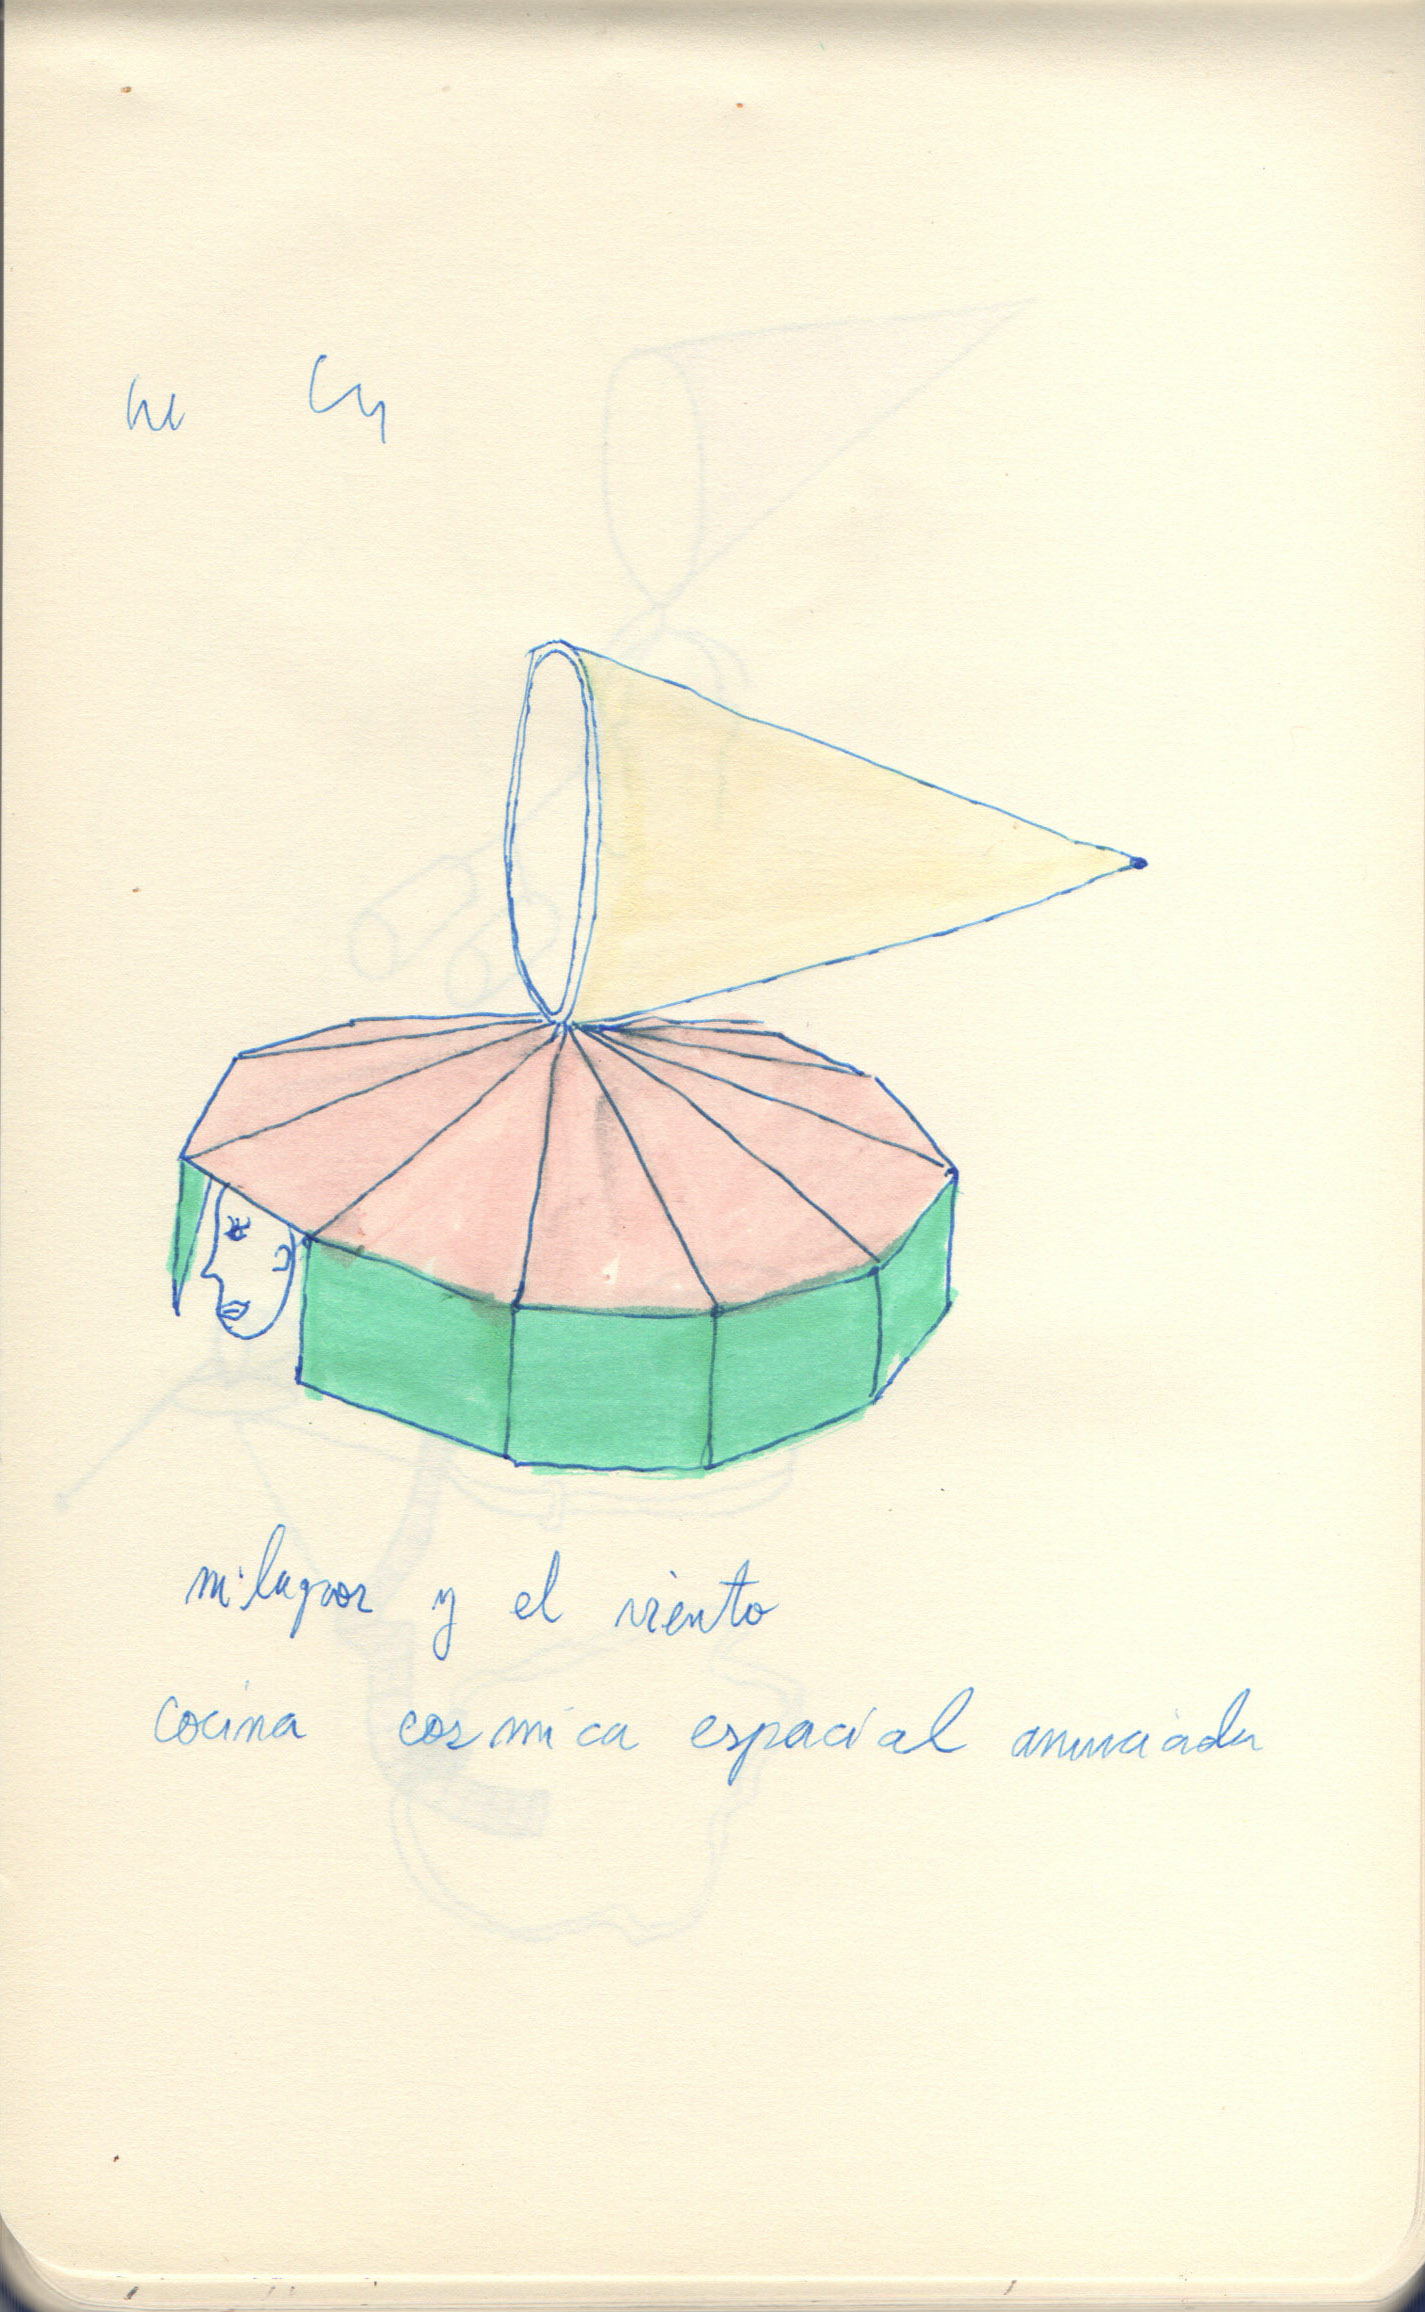 y el viento
cocina cosmica espacial anunciada